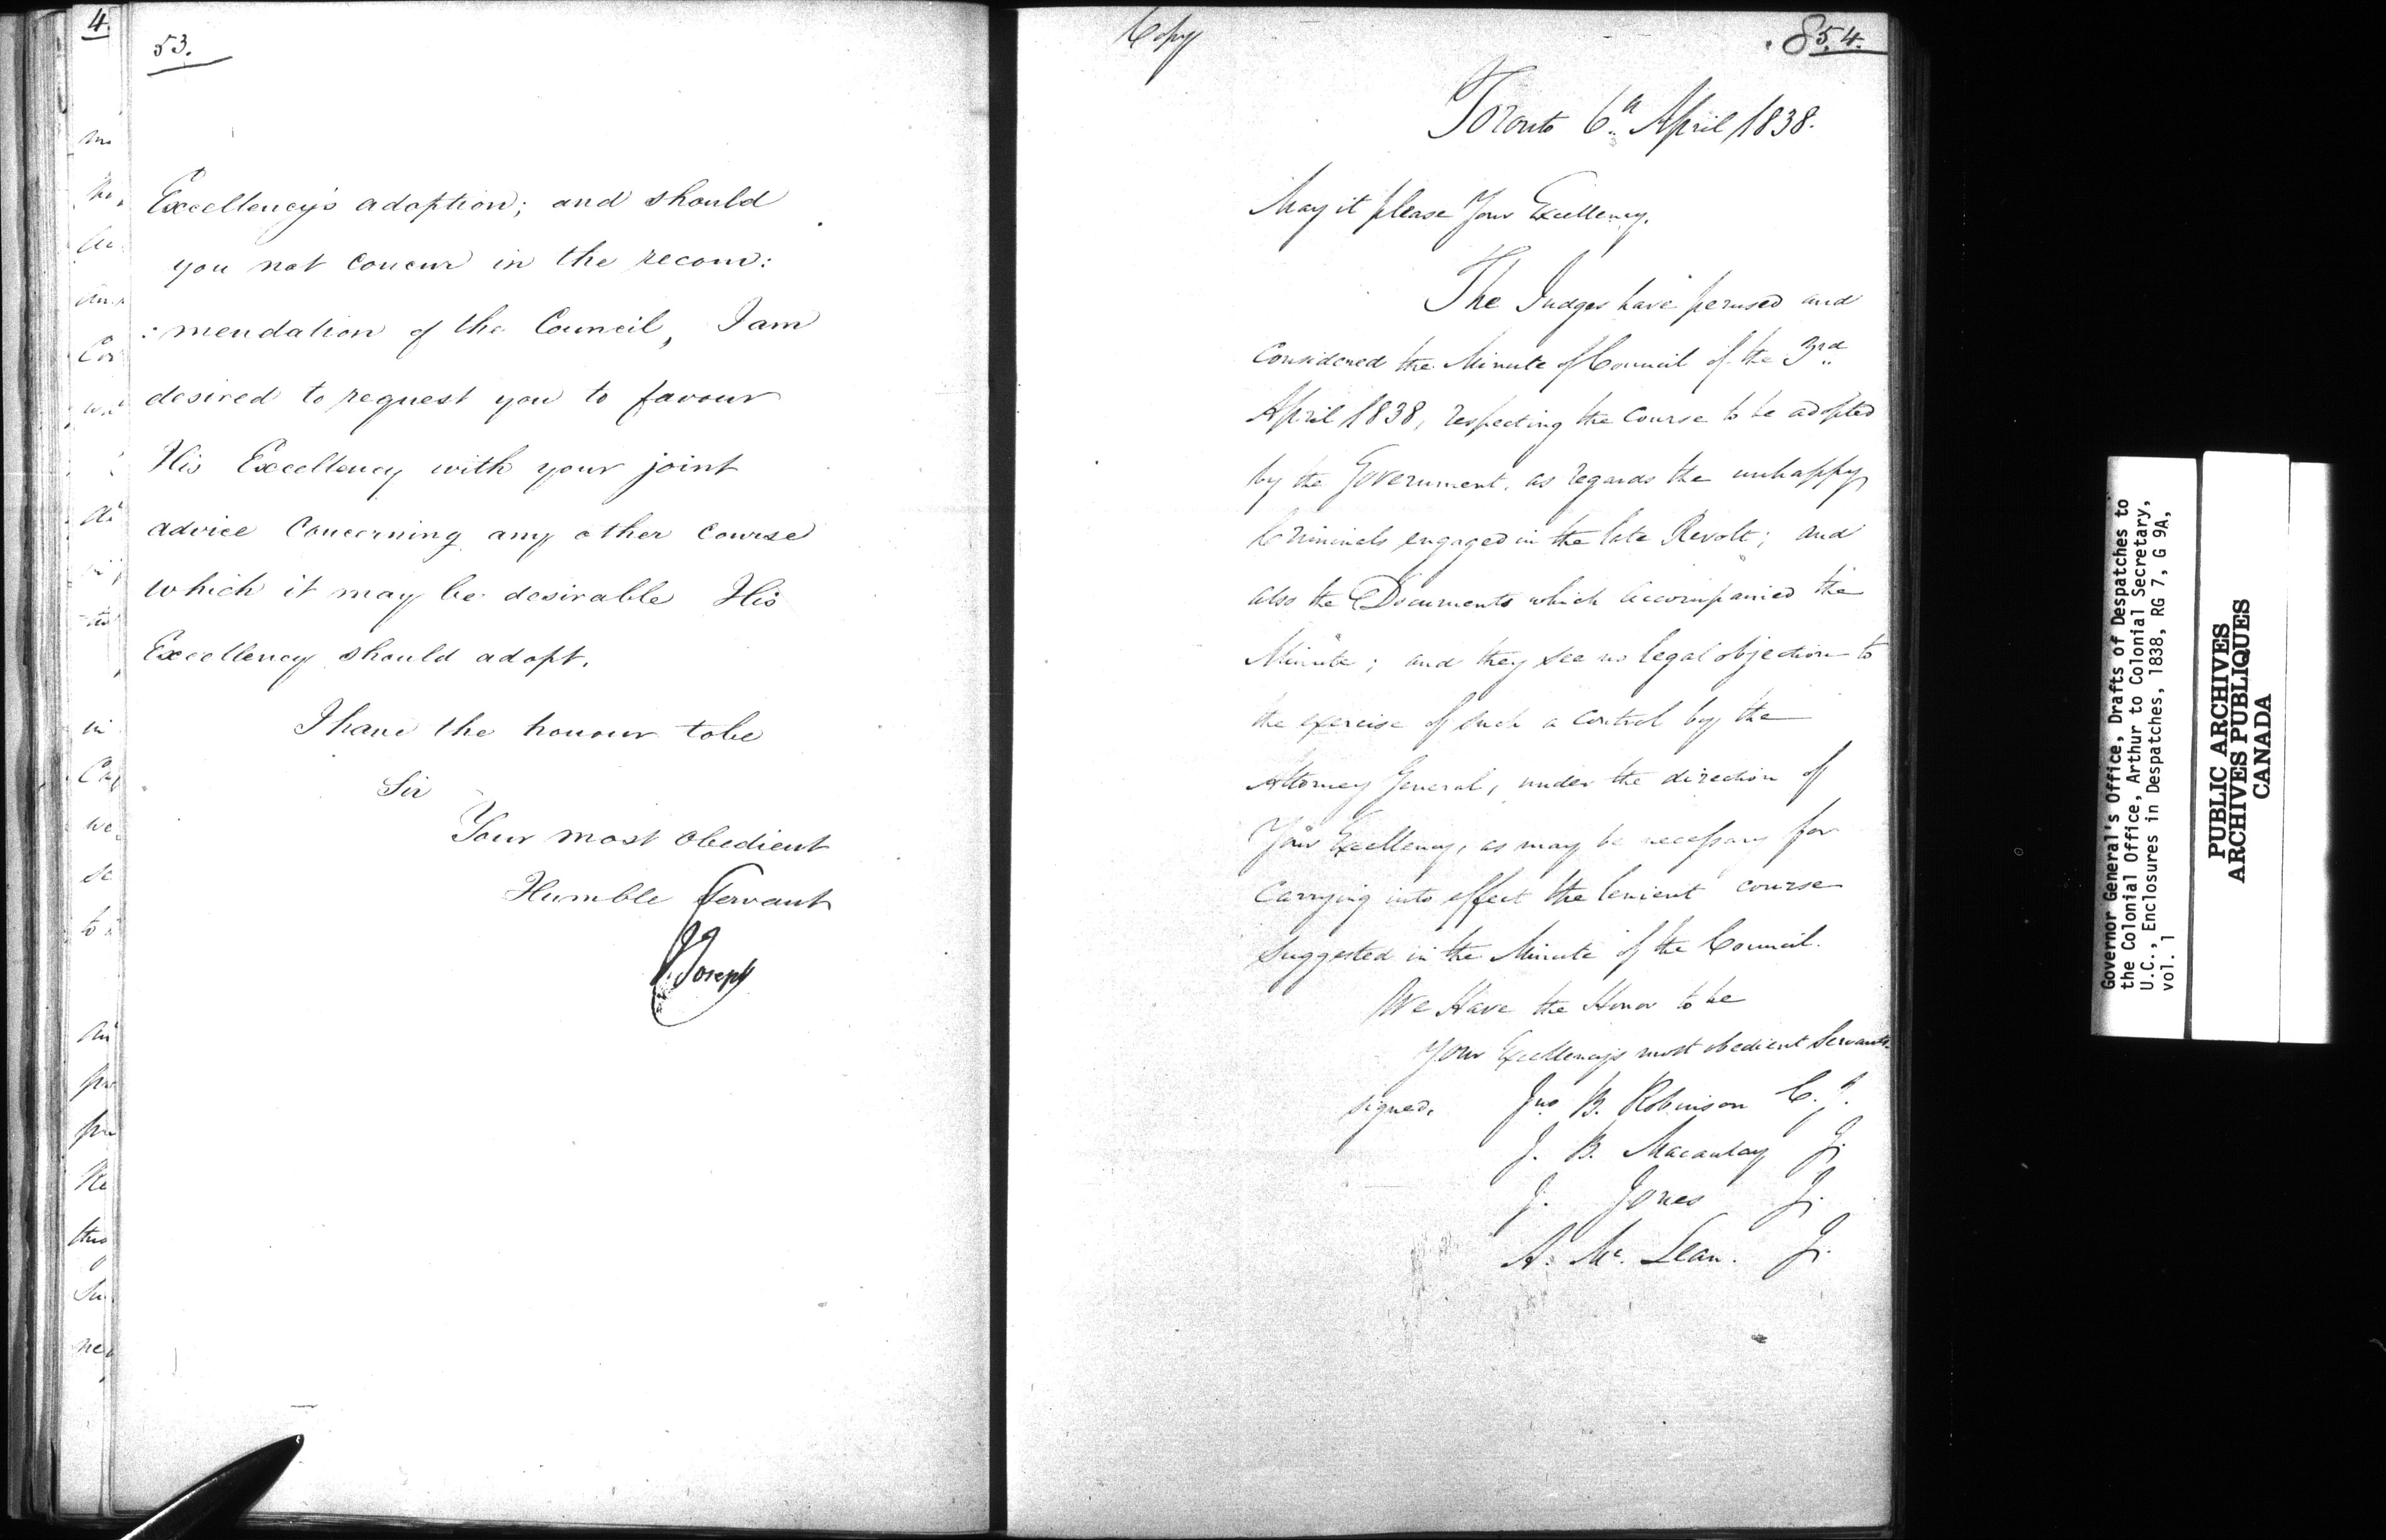 4.
53.
Excellency's adoption; and should
you not concur in the recom:
:mendation of the Council, I am
desired to request you to favour
His Excellency with your joint
advice concerning any other course
which it may be desirable His
Excellency should adopt.
I have the honour to be
Sir
Your most obedient
Humble Servant
J. Joseph
Copy
854.
Toronto 6th April 1838.
May it please Your Excellency.
The Judges have perused and
Considered the Minute of Council of the 3rd
April 1838, respecting the Course to be adopted
by the Government, as regards the unhappy
Criminals engaged in the late Revolt; and
also the Documents which accompanied the
Minute; and they see no legal objection to
the exercise of such a control by the
Attorney General, under the direction of
Your Excellency, as may be necessary for
Carrying into effect the lenient course
Suggested in the Minute of the Council.
We Have the Honor to be
Your Excellency's most obedient Servants
signed. Jno B. Robinson C.J.
J. B. Macaulay J.
J. Jones J.
A. Mc. Lean. J.
Governor General's Office, Drafts of Despatches to
the Colonial Office, Arthur to Colonial Secretary,
U.C., Enclosures in Despatches, 1838, RG 7, G 9A,
vol. 1
PUBLIC ARCHIVES
ARCHIVES PUBLIQUES
CANADA